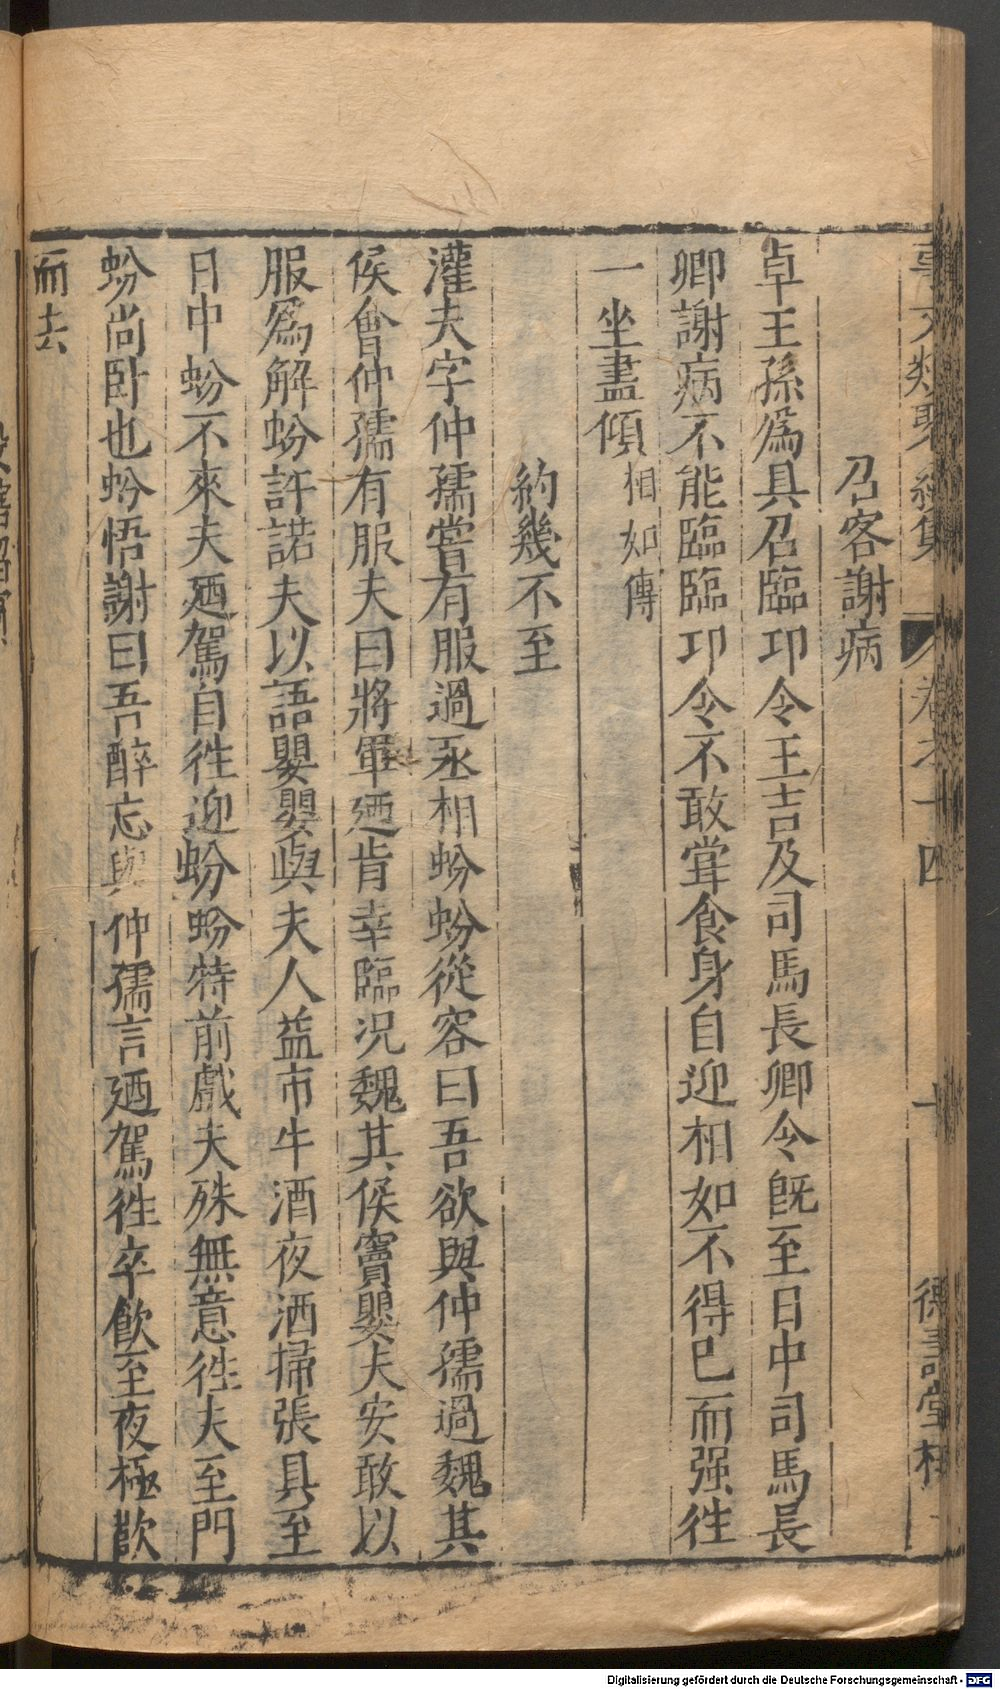 召客謝病
卓王孫爲具召臨邛令王吉及司馬長卿令旣至日中司馬長
卿謝病不能臨臨邛令不敢甞食身自迎相如不得已而强徃
一坐盡傾相如傳
約幾不至
灌夫字仲孺嘗有服過丞相蚡蚡從容曰吾欲與仲孺過魏其
侯會仲孺有服夫曰將軍廼肯幸臨況魏其侯竇嬰夫安敢以
服爲解蚡許諾夫以語嬰嬰與夫人益市牛酒夜洒掃張具至
日中蚡不來夫廼駕自徃迎蚡蚡特前戲夫殊無意徃夫至門
蚡尚卧也蚡悟謝曰吾醉忘與仲孺言廼駕徃卒飮至夜極歡
而去
卷之十四
十
德壽堂梓
Digitalisierung gefördert durch die Deutsche Forschungsgemeinschaft - DFG